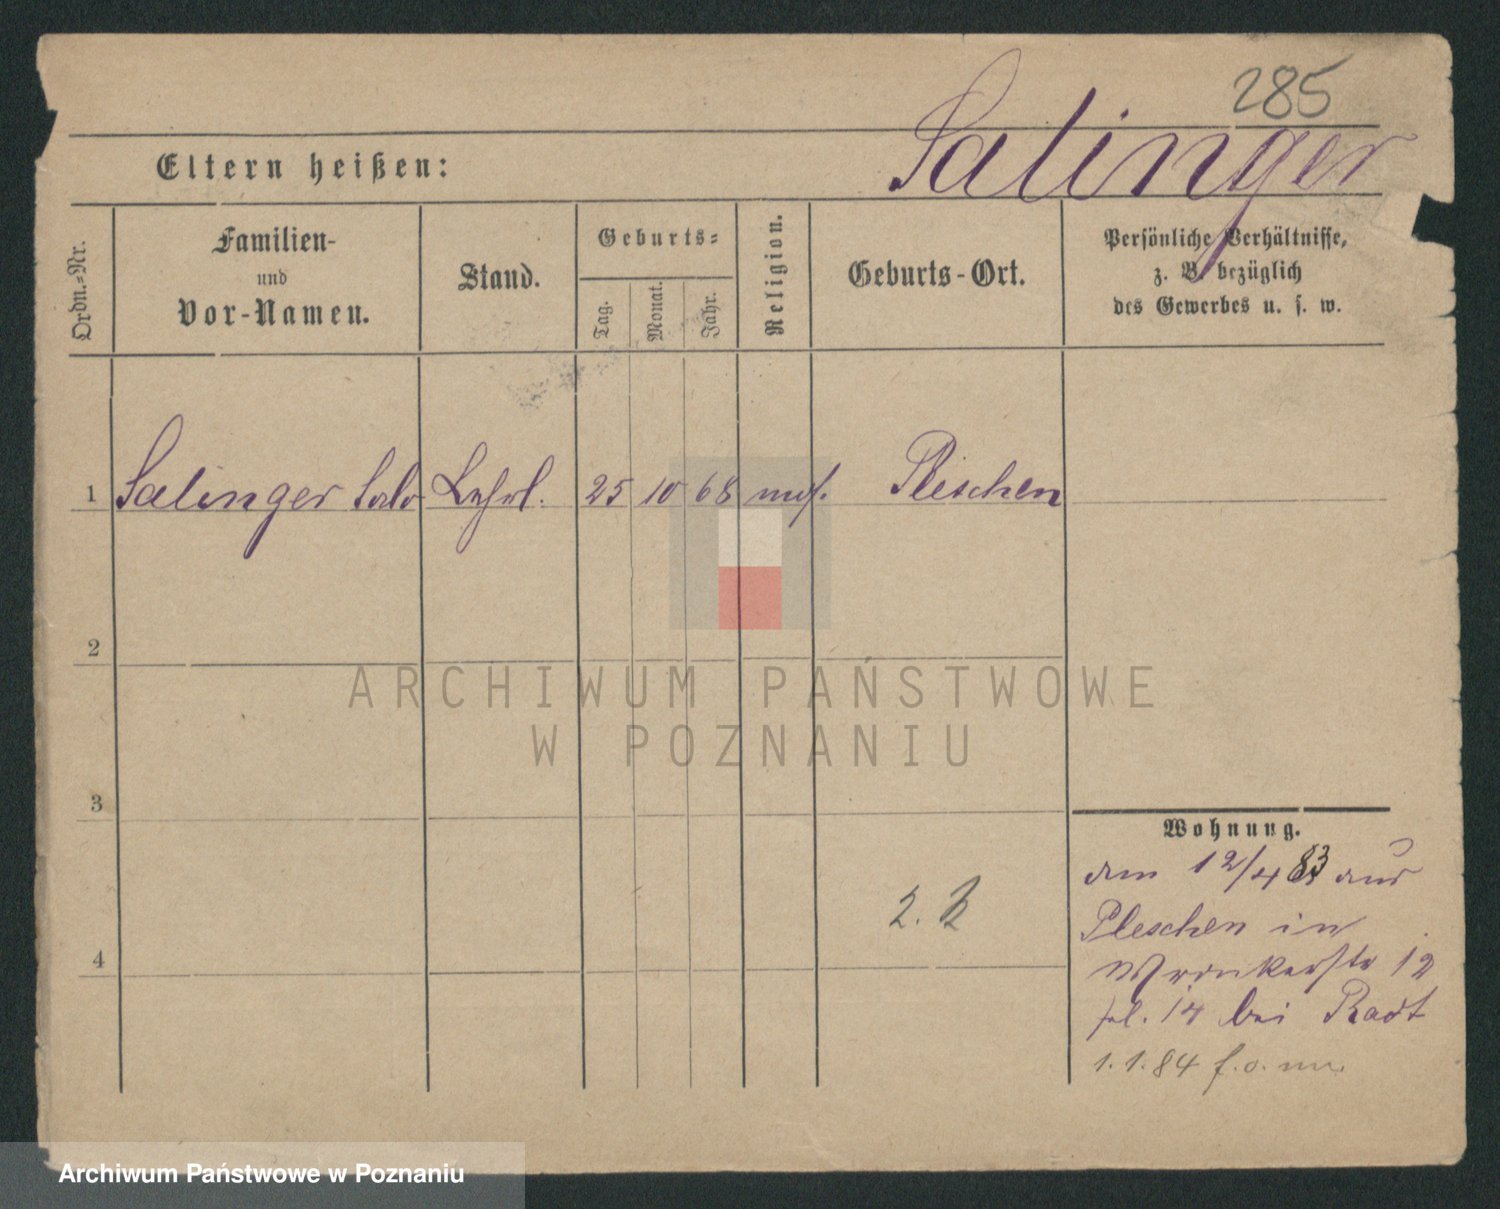 285
Salinger
Eltern heißen:
Ordn.-Nr.
Familien-
und
Vor-Namen.
Stand.
Geburts-
Tag.
Monat.
Jahr.
Religion.
Geburts-Ort.
Persönliche Verhältnisse,
z. B. bezüglich
des Gewerbes u. s. w.
1 Salinger Salo Lehrl. 25 10 68 mos. Pleschen
2
3
4
Wohnung.
am 12/4 83 aus
Pleschen in
Wronkerstr 12
14 bei Radt
1.1.84
2.
ARCHIWUM PAŃSTWOWE
W POZNANIU
Archiwum Państwowe w Poznaniu